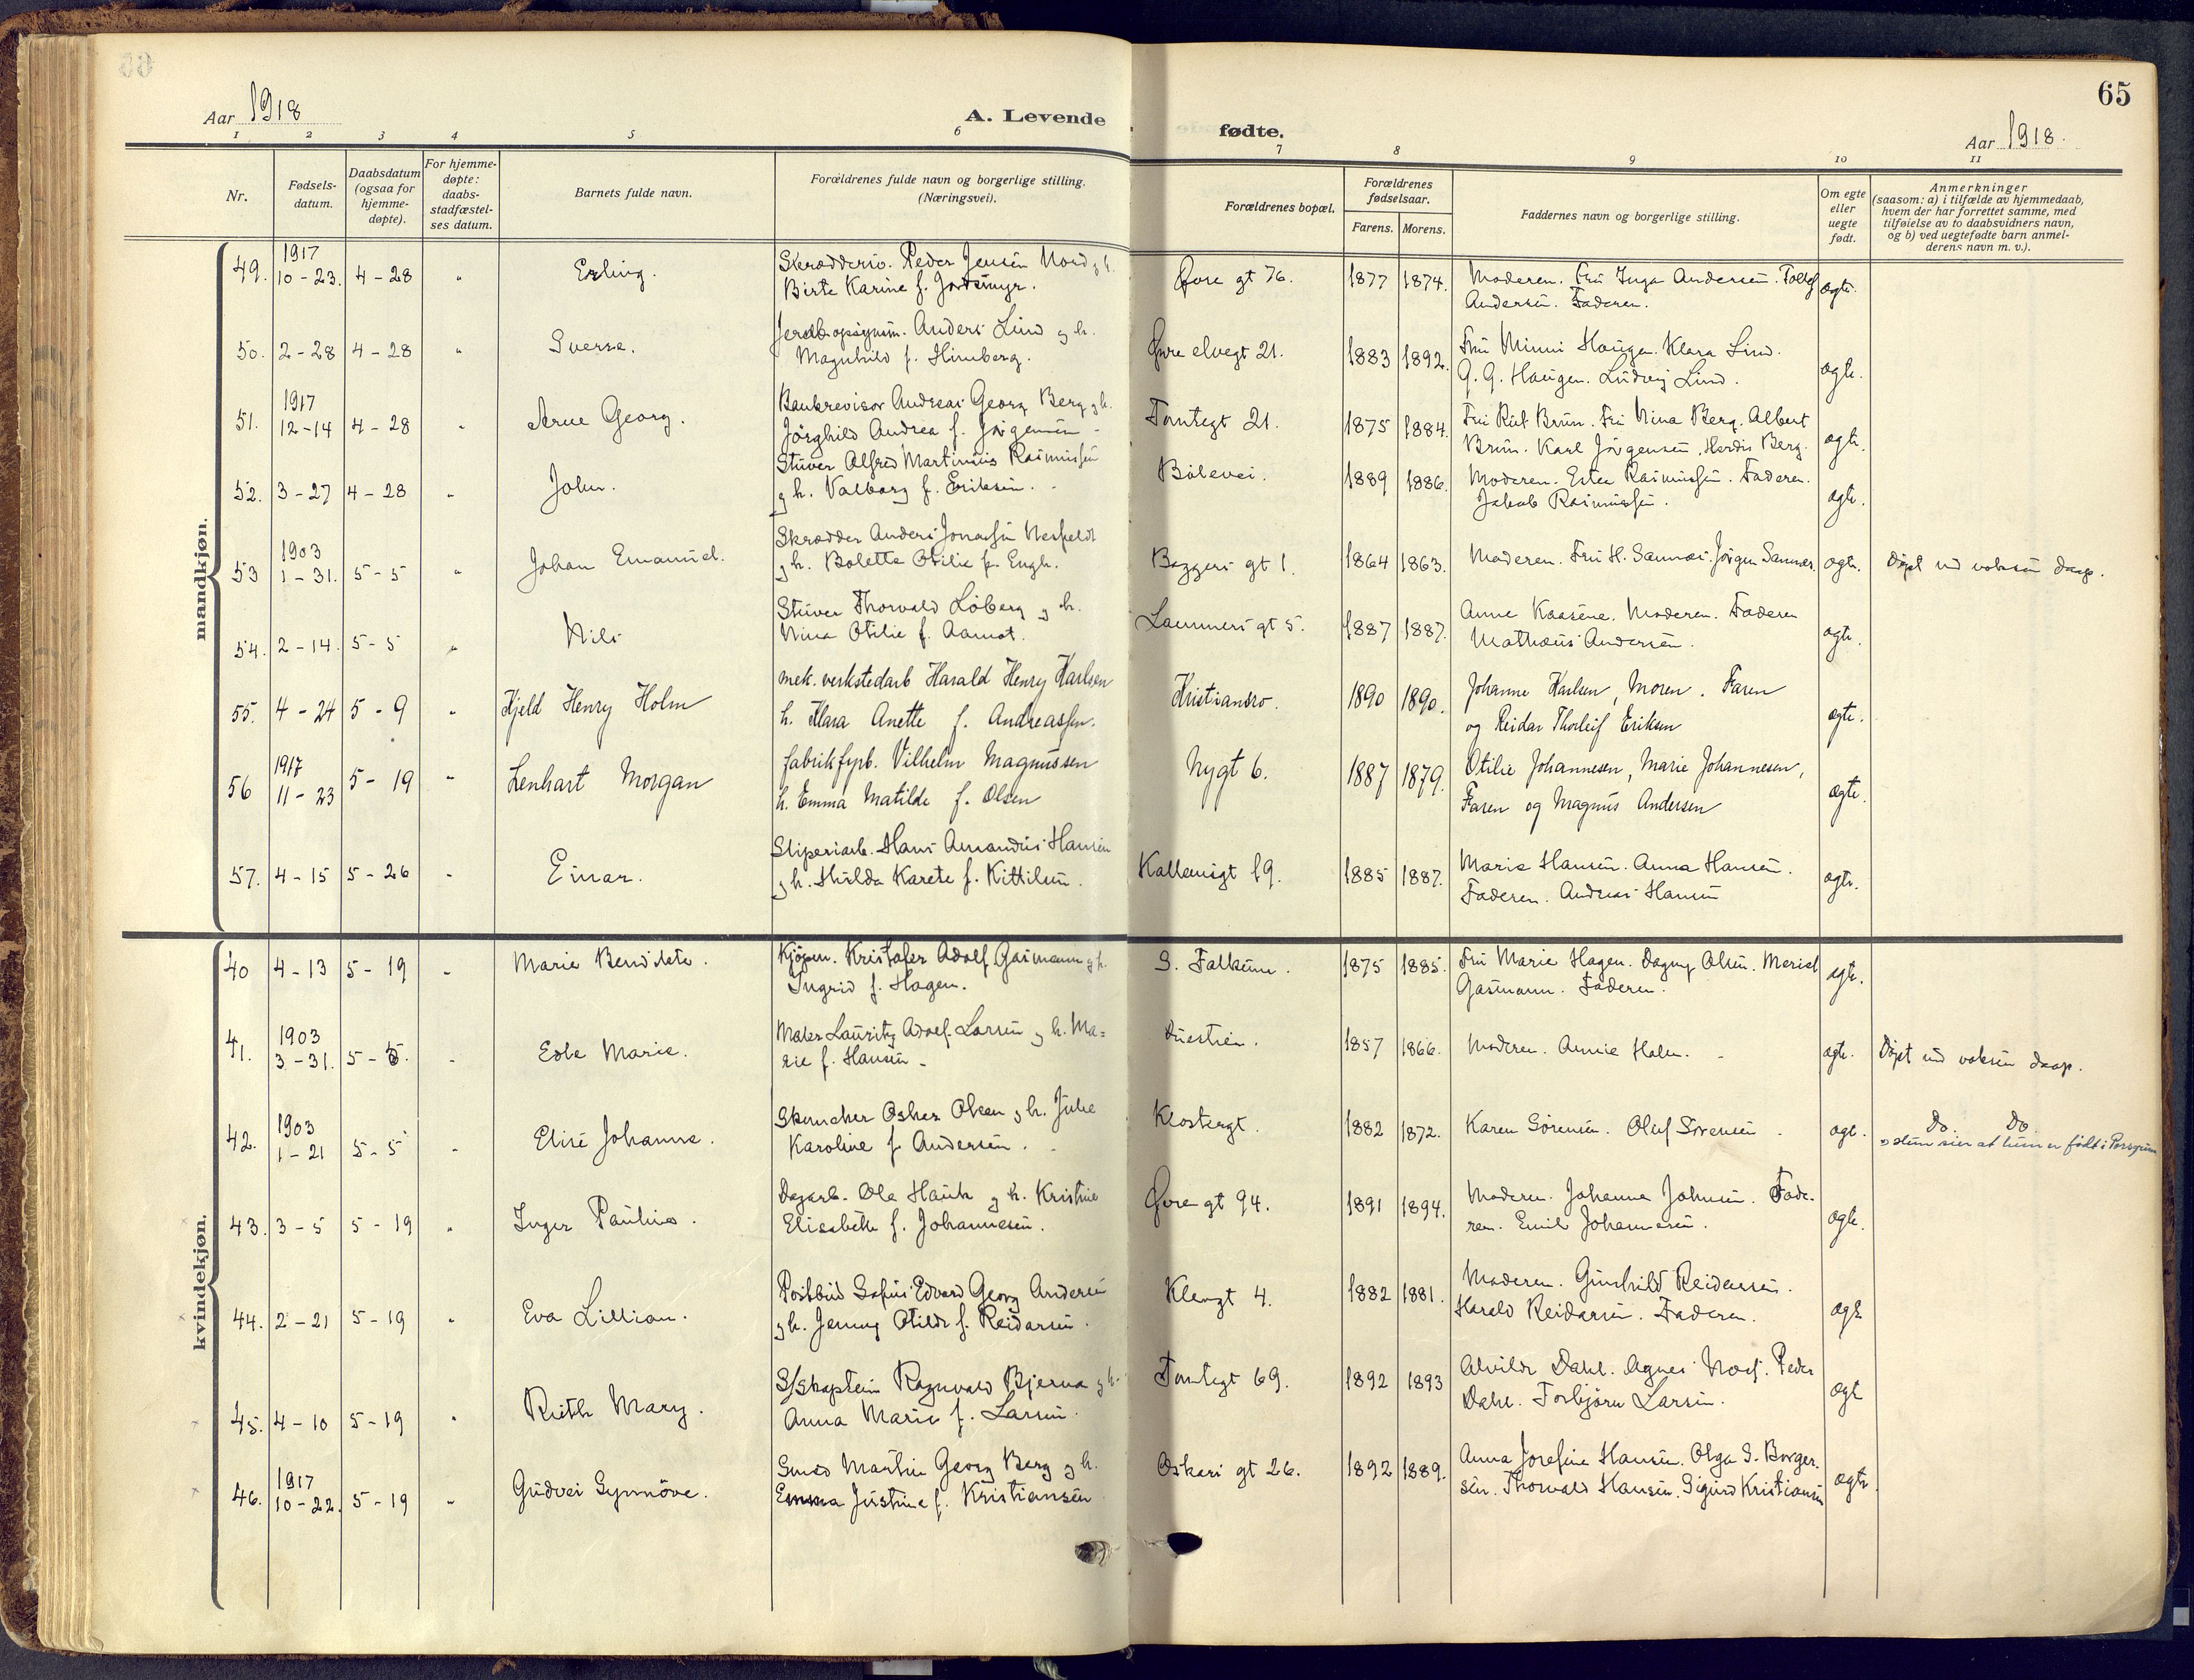 65
Aar 1918
A. Levende
fødte.
Aar 1918.
1 2 3 4 5 6 7 8 9 10 11
Nr.
Fødsels-
datum.
Daabsdatum
(ogsaa for
hjemme-
døpte).
For hjemme-
døpte:
daabs-
stadfæstel-
ses datum.
Barnets fulde navn.
Forældrenes fulde navn og borgerlige stilling.
(Næringsvei).
Forældrenes bopæl.
Forældrenes
fødselsaar.
Farens. Morens.
Faddernes navn og borgerlige stilling.
Om egte
eller
uegte
født.
Anmerkninger
(saasom: a) i tilfælde av hjemmedaab,
hvem der har forrettet samme, med
tilføielse av to daabsvidners navn,
og b) ved uegtefødte barn anmel-
derens navn m. v.).
mandkjøn.
49. 1917 10-23. 4-28 " Erling. Peder Jensen Nord og h.
Birte Karine f.
Øvre gt 76. 1877 1874. Moderen. Fru Inga Andersen.
Andersen. Faderen. ægte.
50. 2-28 4-28 " Sverre. Anders Lind og h.
Magnhild f. Himberg.
Øvre elvegt 21. 1883 1892. Fru Minni Haugen. Klara Lind.
G. G. Haugen. Ludvig Lind. ægte.
51. 1917 12-14 4-28 " Arne Georg. Bankrevisor Andreas Georg Berg og h.
Jørghild Andrea f. Jørgensen
Tomtegt 21. 1875 1884. Fru Rut Brun. Fru Nina Berg. Albert
Brun. Karl Jørgensen. Herdis Berg. ægte.
52. 3-27 4-28 " John. Stuver Alfred Martinius Rasmussen
og h. Valborg f. Eriksen.
Bølevei. 1889 1886. Moderen. Ester Rasmussen. Faderen.
Jakob Rasmussen. ægte.
53 1903 1-31. 5-5 " Johan Emanuel. Skrædder Anders Jonassen Nesfeldt
og h. Bolette Otilie f. Engh.
Baggers gt 1. 1864 1863. Moderen. Fru H. Sannæs. Jørgen Sannæs. ægte. Døpt ved voksen daap.
54. 2-14. 5-5 " Nils Stuver Thorvald Løberg og h.
Nina Otilie f. Aamot.
Lammers gt 5. 1887 1887. Anne Kaasene. Moderen. Faderen
Mathæus Andersen. ægte.
55. 4-24 5-9 " Kjeld Henry Holm mek. verkstedarb Harald Henry Karlsen
h. Klara Anette f. Andreassen.
Kristiansro. 1890 1890. Johanne Karlsen, Moren. Faren
og Reidar Thorleif Eriksen ægte.
56 1917 11-23 5-19 " Lenhart Morgan fabrikfyrb. Vilhelm Magnussen
h. Emma Matilde f. Olsen
Nygt 6. 1887 1879. Otilie Johannesen, Marie Johannesen,
Faren og Magnus Andersen ægte.
57. 4-15 5-26 " Einar. Sliperiarb. Hans Amandus Hansen
og h. Hulda Karete f. Kittilsen.
Kallemsgt 19. 1885 1887. Marie Hansen. Anna Hansen.
Faderen. Andreas Hansen ægte.
kvindekjøn.
40 4-13 5-19 " Marie Bendikte. Kjøpm. Kristofer Adolf Gasmann og h.
Ingrid f. Hagen.
S. Falkum. 1875 1885. Fru Marie Hagen. Dagny Olsen.
Gasmann. Faderen. ægte.
41. 1903 3-31. 5-5. " Edle Marie. Maler Lauritz Adolf Larsen og h. Ma=
rie f. Hansen
Duestien. 1857 1866. Moderen. Annie Holm. ægte. Døpt ved voksen daap.
42. 1903 1-21 5-5 " Elise Johanne. Skomaker Osker Olsen og h. Julie
Karoline f. Andersen.
Klostergt. 1882 1872. Karen Sørensen. Oluf Sørensen. ægt. Do. Do.
sier at hun er født i Porsgrunn
43. 3-5 5-19 " Inger Pauline. Dagarb. Ole Hauk og h. Kristine
Elisabeth f. Johannesen.
Øvre gt 94. 1891 1894. Moderen. Johanna Johnsen. Fade-
ren. Emil Johannesen. ægte.
44. 2-21 5-19 " Eva Lillian. Postbud Sofus Edvard Georg Andersen
og h. Jenny Otilde f. Reidarsen.
Klevgt 4. 1882 1881. Moderen. Gunhild Reidarsen.
Harald Reidarsen. Faderen. ægte
45. 4-10 5-19 " Ruth Mary. S/Skaptein Ragnvald Bjerva og h.
Anna Marie f. Larsen.
Tomtegt 69. 1892 1893 Alvilde Dahl. Agnes Næs. Peder
Dahl. Torbjørn Larsen. ægt
46. 1917 10-22. 5-19 " Gudvei Synnöve. Smed Martin Georg Berg og h.
Emma Justine f. Kristiansen
Oskars gt 26. 1892 1889. Anna Josefine Hansen. Olga S. Borger.
sen. Thorvald Hansen. Sigurd Kristiansen ægte